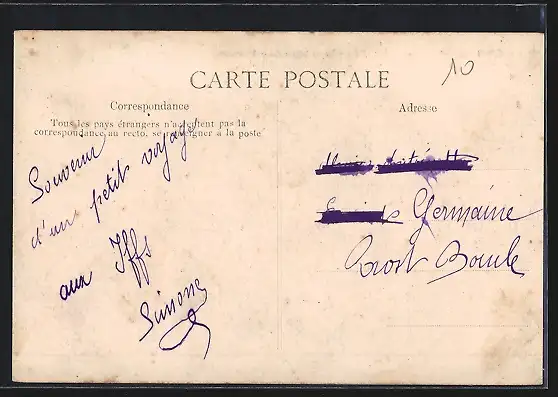 10
CARTE POSTALE
Correspondance
Tous les pays étrangers n'acceptent pas la
correspondance au recto, se renseigner à la poste
Souvenir
d'un petit voyage
aux Iffs
Simone
Adresse
Germaine